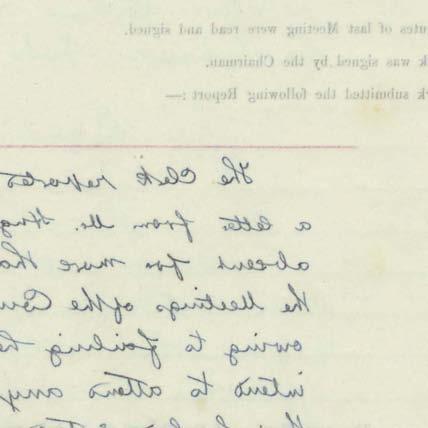 utes of last Meeting were read and signed.
k was signed by the Chairman.
rk submitted the following Report :—
The Clerk reported
a letter from Mr. Hug
absent for more tha
the Meetings of the Cou
owing to failing he
intend to attend any